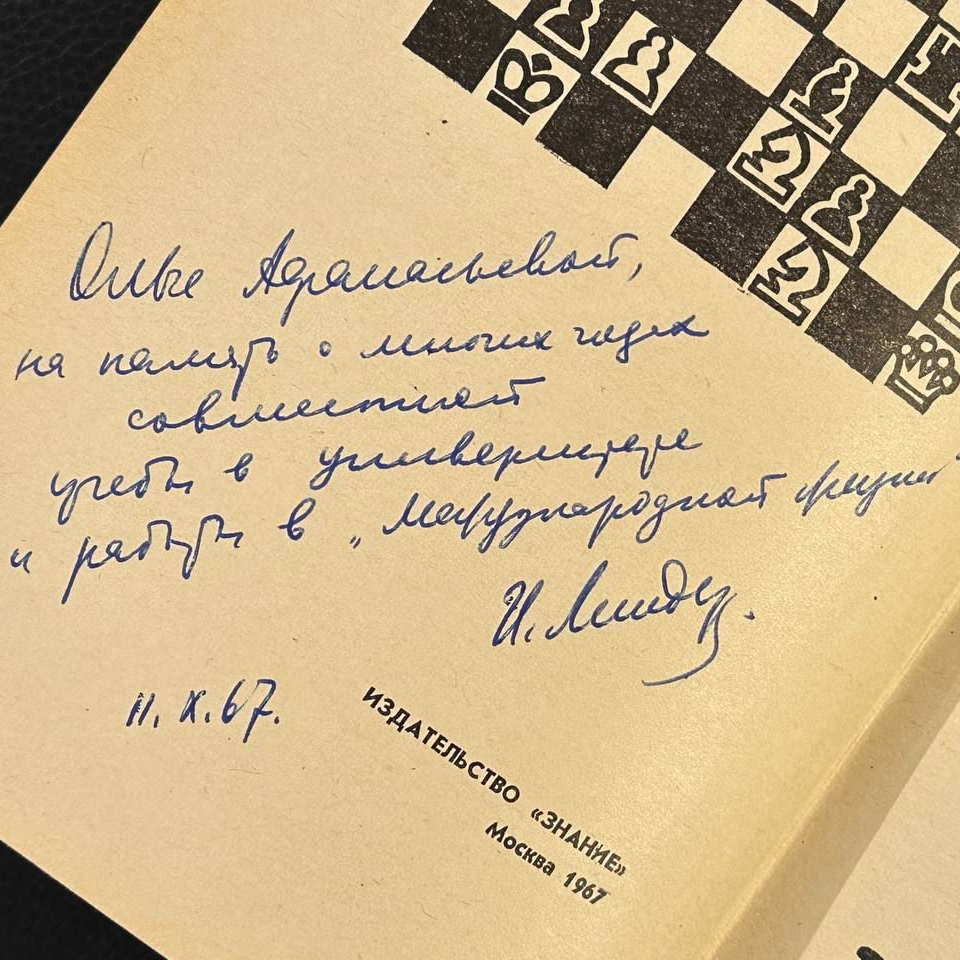 Ольге Афанасьевой,
на память о многих годах
совместной
учебы в университете
и работы в „Международной
И. Линдер.
11.X.67.
ИЗДАТЕЛЬСТВО «ЗНАНИЕ»
Москва 1967